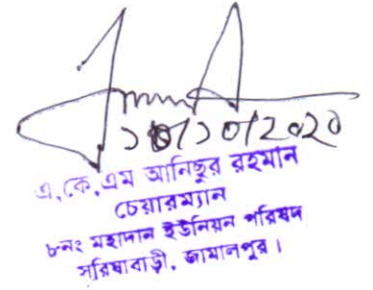 এ, কে, এম আনিছুর রহমান
চেয়ারম্যান
৮নং মহাদান ইউনিয়ন পরিষদ
সরিষাবাড়ী, জামালপুর।